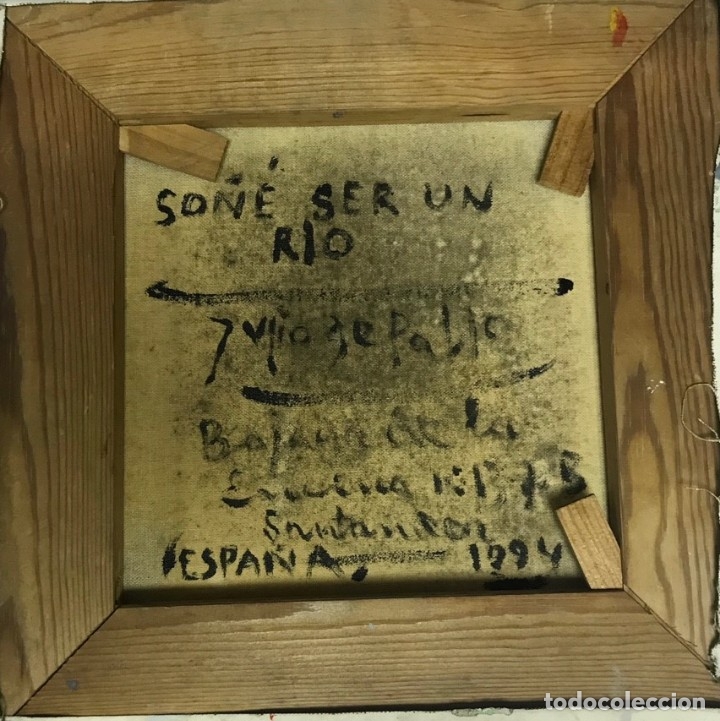 SOÑÉ SER UN
RÍO
Julio de Pablo
Bajada de la
Encina
Santander
(ESPAÑA, 1994
todocoleccion